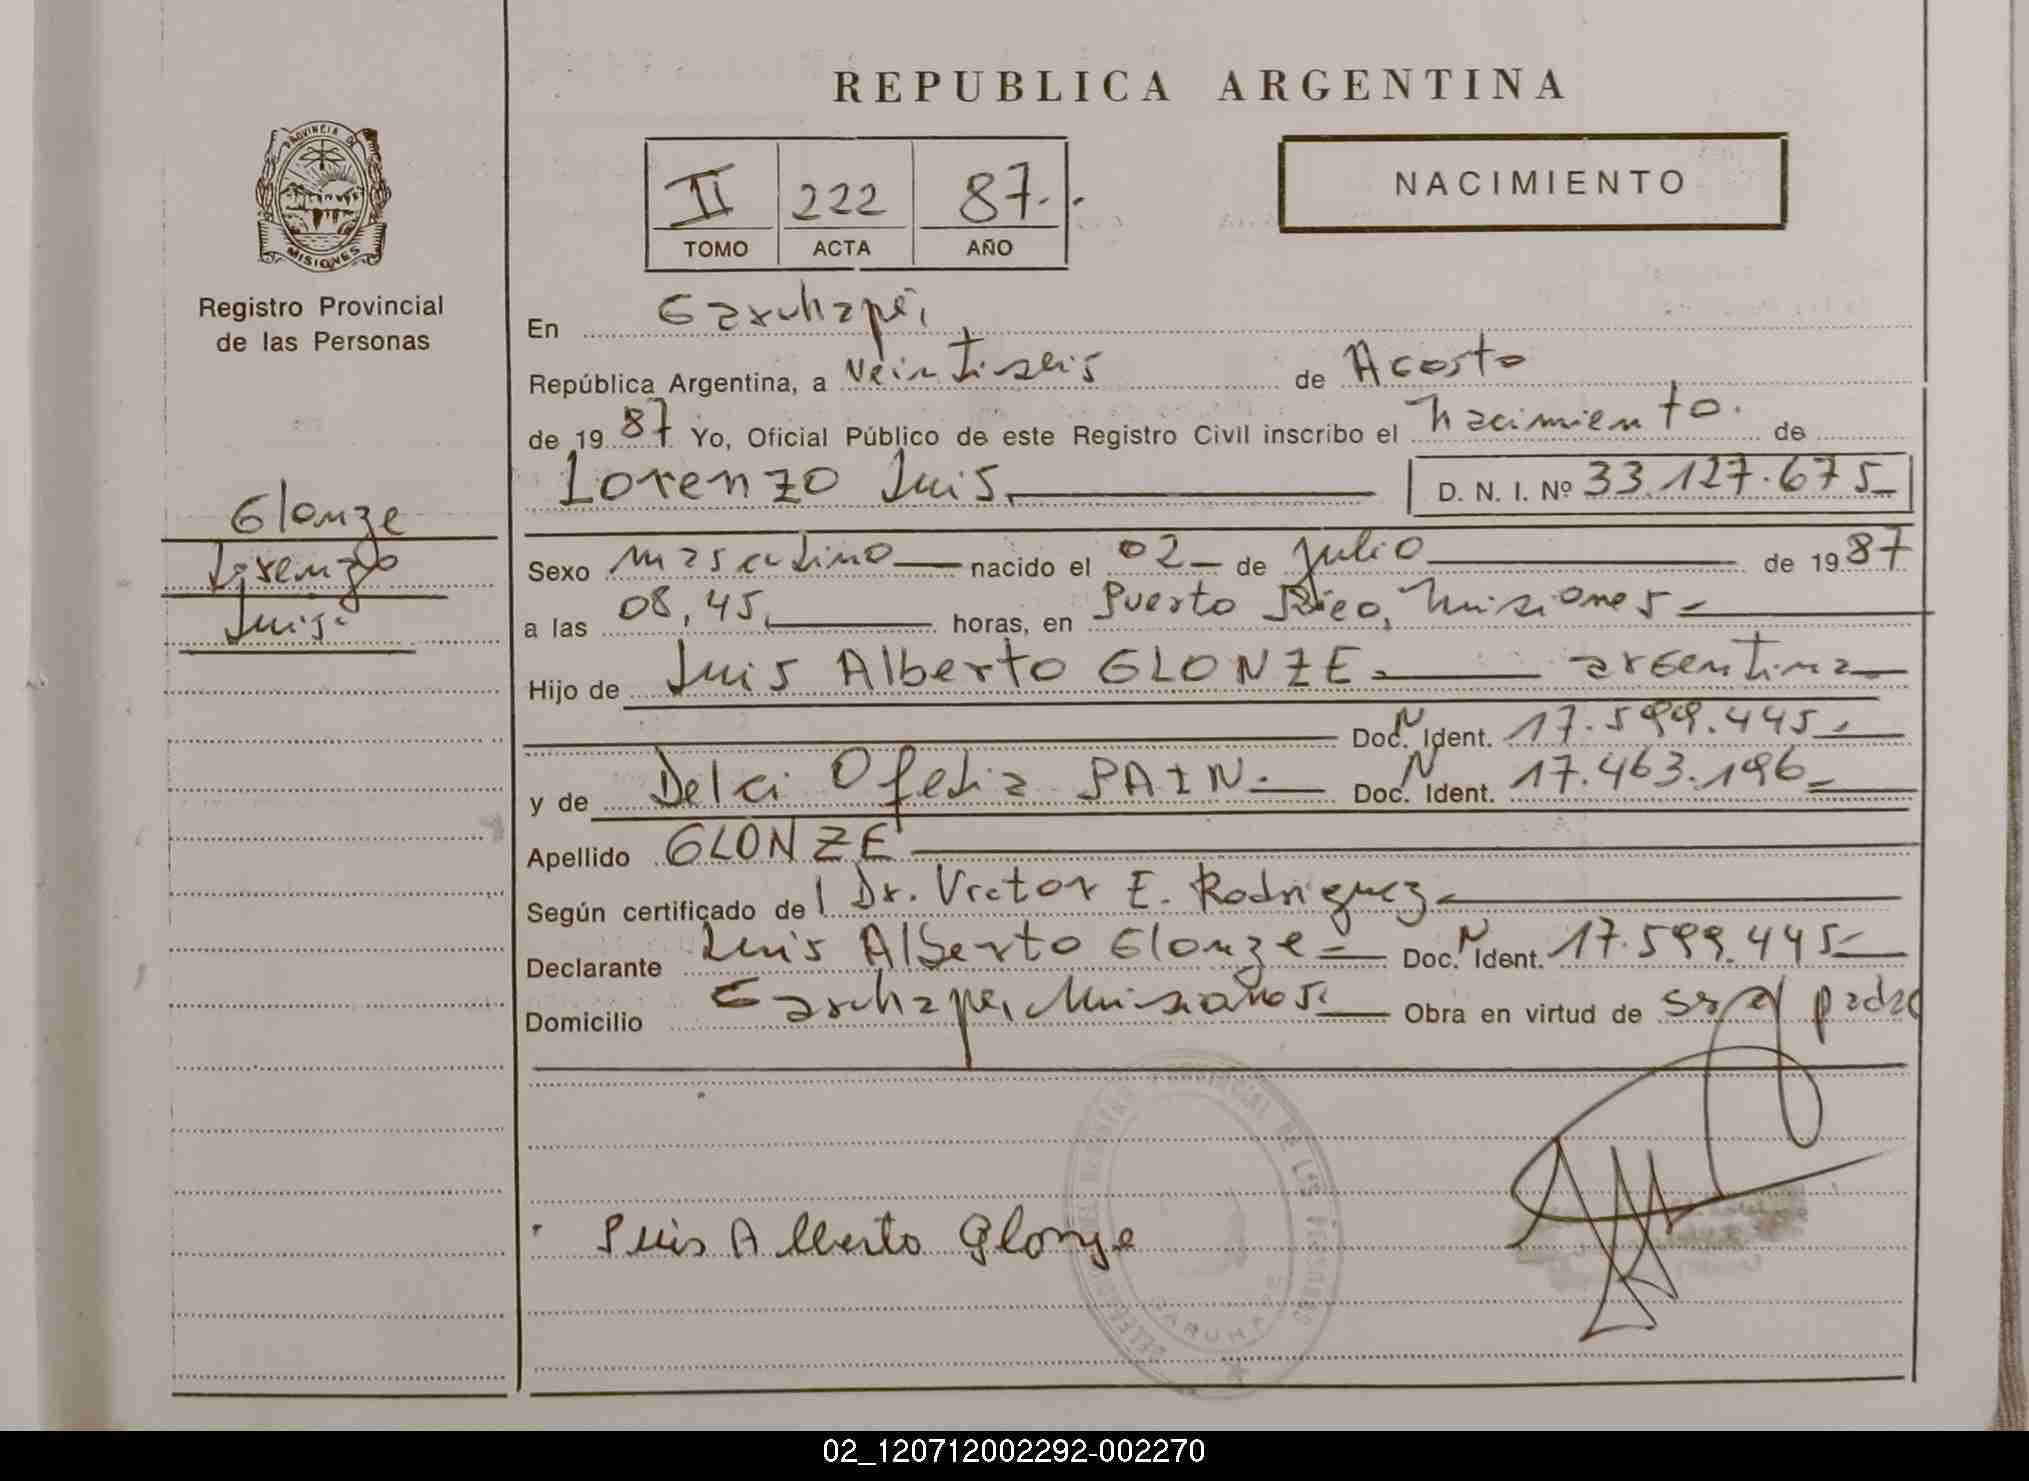 REPUBLICA ARGENTINA
PROVINCIA DE
MISIONES
Registro Provincial
de las Personas
II 222 87.
TOMO ACTA AÑO
NACIMIENTO
En Garuhapé,
República Argentina, a Veintiseis de Agosto
de 1987 Yo, Oficial Público de este Registro Civil inscribo el nacimiento. de
Lorenzo Luis, D. N. I. Nº 33.127.675
Glonze
Lorenzo
Luis.
Sexo masculino nacido el 02 de julio de 1987
a las 08,45, horas, en Puerto Rico, Misiones
Hijo de Luis Alberto GLONZE. argentina
Doc. N Ident. 17.599.445
y de Delci Ofelia PAIN. Doc. N Ident. 17.463.196
Apellido GLONZE
Según certificado del Dr. Victor E. Rodriguez
Declarante Luis Alberto Glonze Doc. N Ident. 17.599.445
Domicilio Garuhapé, Misiones. Obra en virtud de ser el padre
Luis Alberto Glonze
REGISTRO PROVINCIAL DE LAS PERSONAS
GARUHAPE
02_120712002292-002270